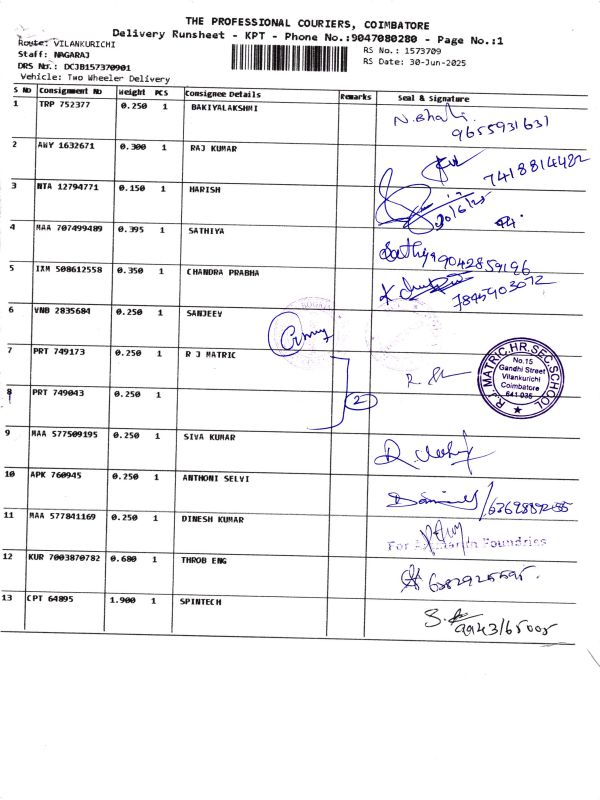 THE PROFESSIONAL COURIERS, COIMBATORE
Delivery Runsheet - KPT - Phone No.:9047080280 - Page No.:1
Route: VILANKURICHI
RS No.: 1573709
Staff: NAGARAJ
RS Date: 30-Jun-2025
DRS No.: DCJB157370901
Vehicle: Two Wheeler Delivery
S No Consignment No Weight PCS Consignee Details Remarks Seal & Signature
1 TRP 752377 0.250 1 BAKIYALAKSHMI N.Bhali 9655931631
2 AWY 1632671 0.300 1 RAJ KUMAR 7418814482
3 NTA 12794771 0.150 1 HARISH 30/6/25
4 MAA 707499489 0.395 1 SATHIYA Sathiya 9042859196
5 IXM 508612558 0.350 1 CHANDRA PRABHA 7845903072
6 VNB 2835684 0.250 1 SANJEEV
7 PRT 749173 0.250 1 R J MATRIC
8 PRT 749043 0.250 1 2
R.J. MATRIC.HR.SEC.SCHOOL
No.15
Gandhi Street
Vilankurichi
Coimbatore
641 035
9 MAA 577509195 0.250 1 SIVA KUMAR
10 APK 760945 0.250 1 ANTHONI SELVI
11 MAA 577841169 0.250 1 DINESH KUMAR
Foundries
12 KUR 7003870782 0.680 1 THROB ENG
13 CPT 64895 1.900 1 SPINTECH 9943165005